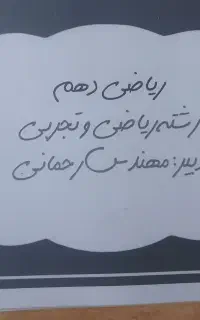 ریاضی دهم
رشته ریاضی و تجربی
دبیر: مهندس رحمانی